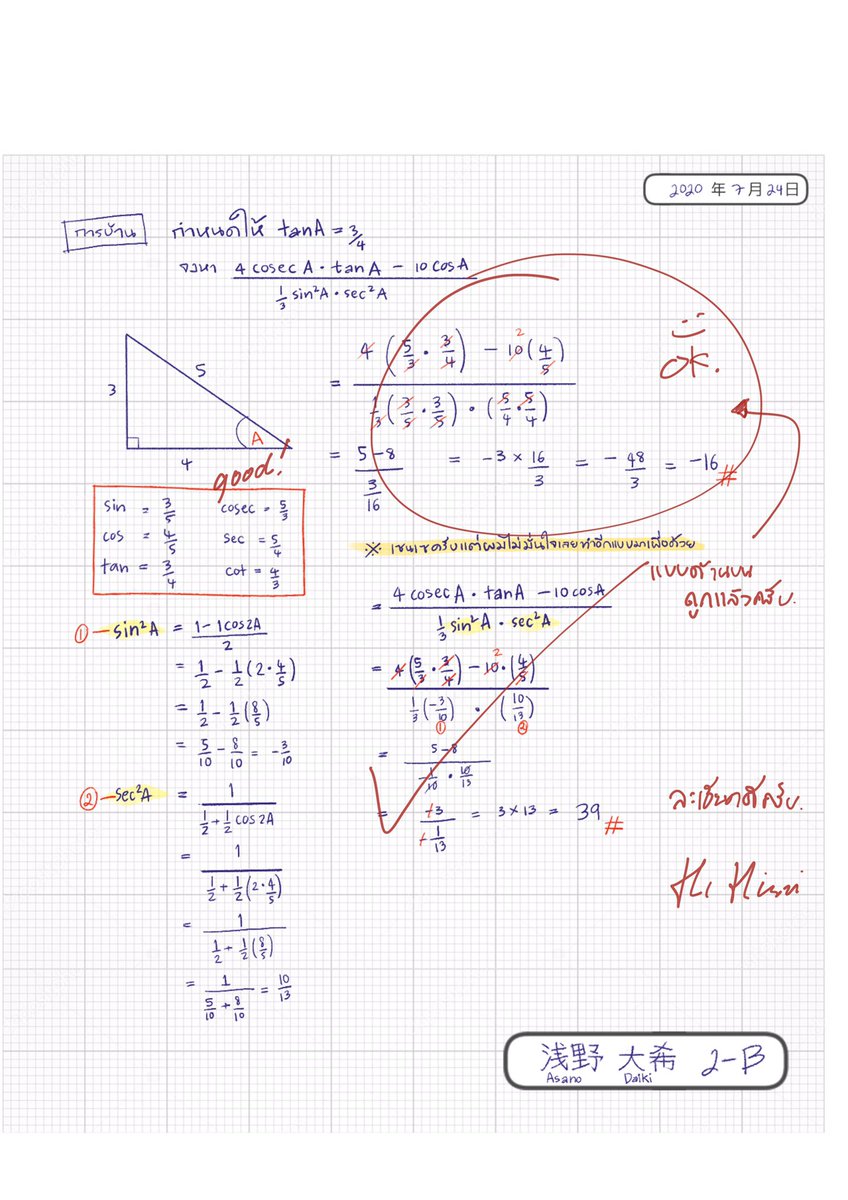 2020 年 7 月 24 日
การบ้าน กำหนดให้ tanA = 3/4
จงหา (4 cosec A · tan A − 10 cos A) / (1/3 sin²A · sec²A)
3
5
4
A
good!
= (4 (5/3 · 3/4) − 10 (4/5)) / (1/3 (3/5 · 3/5) · (5/4 · 5/4))
2
= (5−8) / (3/16) = −3 × 16/3 = − 48/3 = −16 #
OK.
sin = 3/5 cosec = 5/3
cos = 4/5 sec = 5/4
tan = 3/4 cot = 4/3
※ เซนเซครับแต่ผมไม่มั่นใจเลยทำอีกแบบมาเผื่อด้วย
แบบด้านบน
ถูกแล้วครับ.
① − sin²A = (1 − 1cos2A) / 2
= 1/2 − 1/2 (2 · 4/5)
= 1/2 − 1/2 (8/5)
= 5/10 − 8/10 = −3/10
② − sec²A = 1 / (1/2 + 1/2 cos 2A)
= 1 / (1/2 + 1/2 (2 · 4/5))
= 1 / (1/2 + 1/2 (8/5))
= 1 / (5/10 + 8/10) = 10/13
= (4 cosec A · tan A − 10 cos A) / (1/3 sin²A · sec²A)
= (4 (5/3 · 3/4) − 10 · (4/5)) / (1/3 (−3/10) · (10/13))
2
① ②
= (5−8) / (−1/10 · 10/13)
= +3 / (+1/13) = 3 × 13 = 39 #
浅野 大希 2-B
Asano Daiki